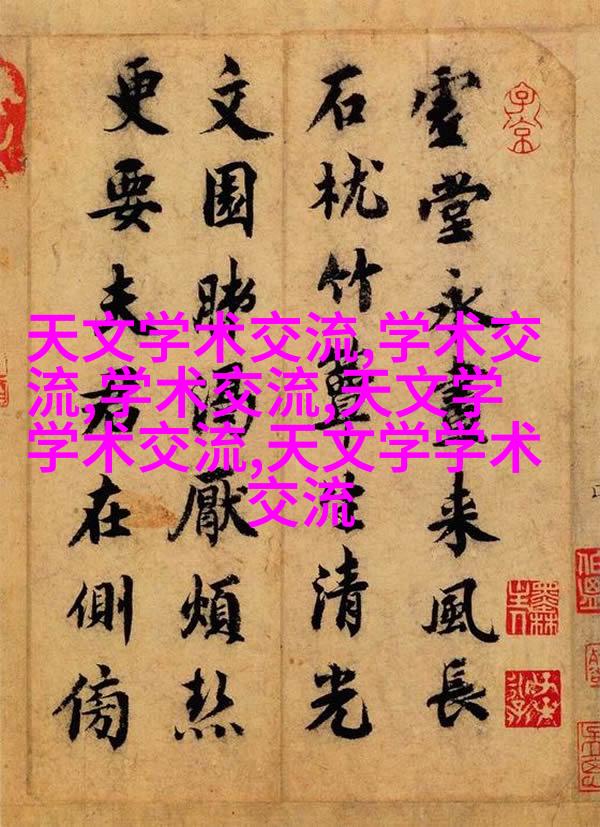 靈堂永晝来風長
石枕竹簟生清光
文園渴厭煩熱
更要夫君在側傍
天文学术交流,学术交
流,学术交流,天文学
学术交流,天文学学术
交流